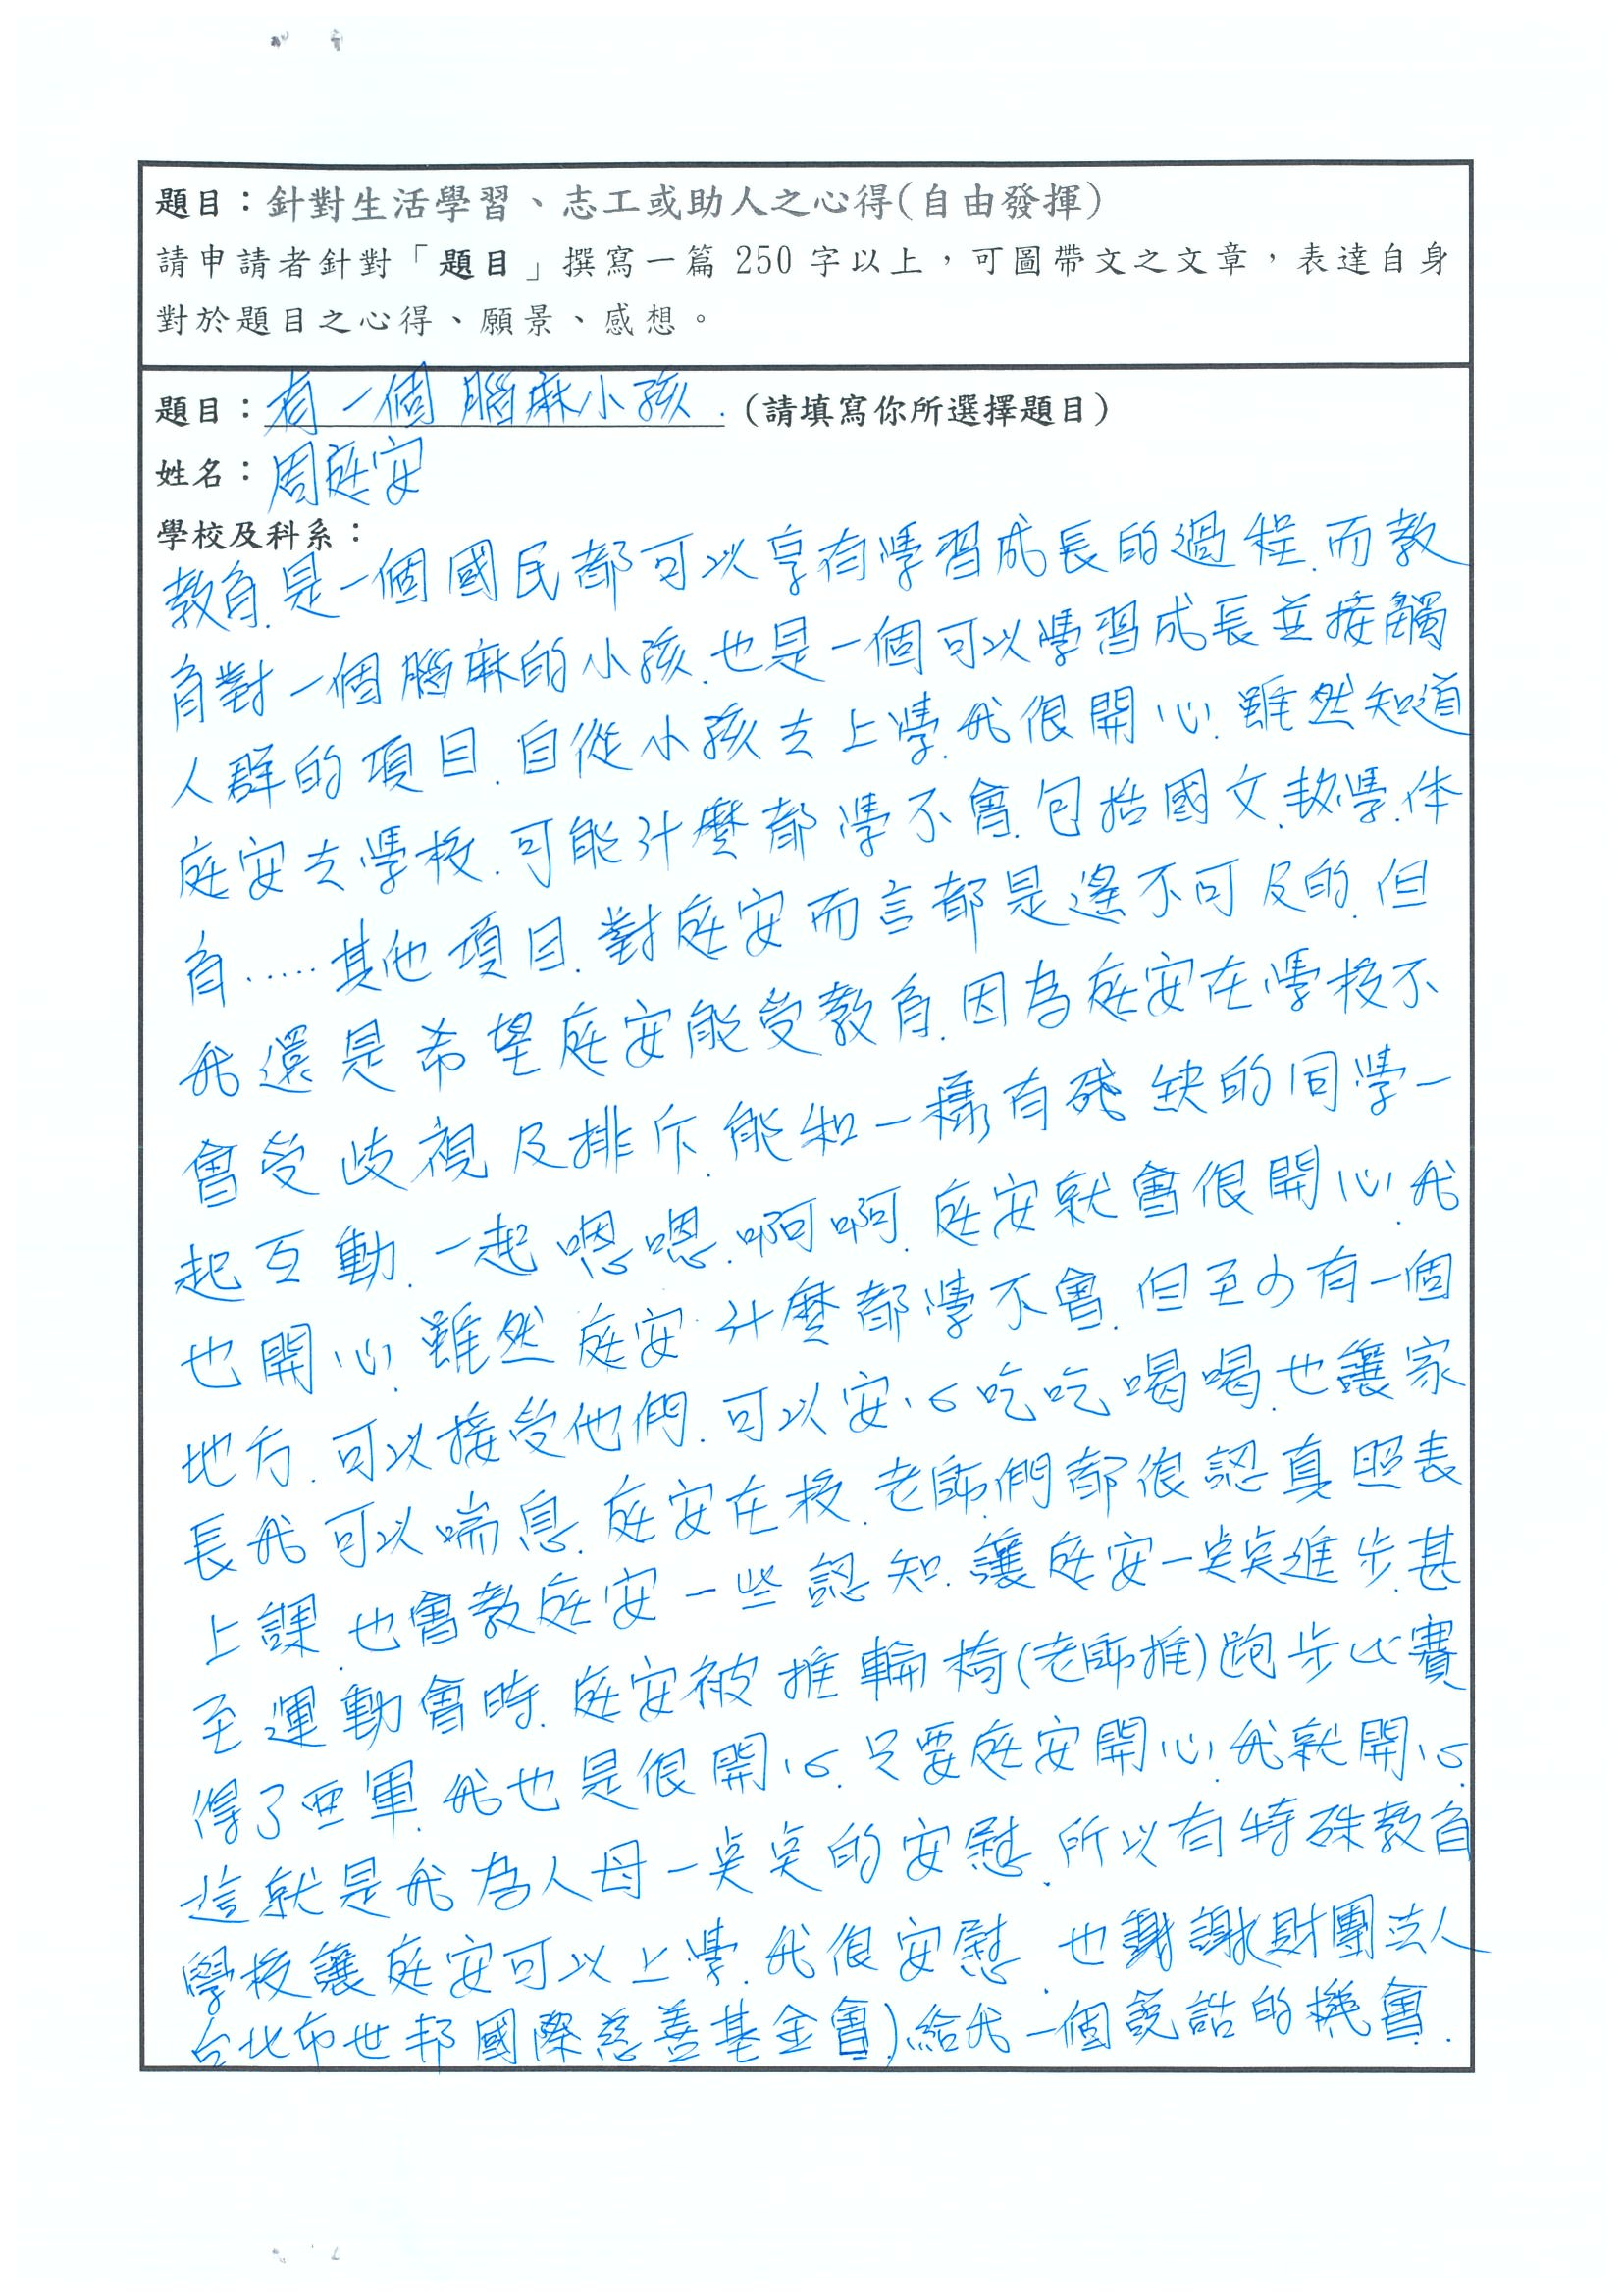 題目：針對生活學習、志工或助人之心得(自由發揮)
請申請者針對「題目」撰寫一篇 250 字以上，可圖帶文之文章，表達自身
對於題目之心得、願景、感想。
題目：有一個腦麻小孩. (請填寫你所選擇題目)
姓名：周庭安
學校及科系：
教育.是一個國民都可以享有學習成長的過程.而教
育對一個腦麻的小孩.也是一個可以學習成長並接觸
人群的項目.自從小孩去上學.我很開心.雖然知道
庭安去學校.可能什麼都學不會.包括國文.数學.体
育.....其他項目.對庭安而言都是遙不可及的.但
我還是希望庭安能受教育.因為庭安在學校不
會受歧視及排斥.能和一樣有殘缺的同學一
起互動.一起嗯嗯.啊啊.庭安就會很開心.我
也開心.雖然庭安什麼都學不會.但至少有一個
地方.可以接受他們.可以安心吃吃喝喝.也讓家
長我可以喘息.庭安在校.老師們都很認真照表
上課.也會教庭安一些認知.讓庭安一點點進步.甚
至運動會時.庭安被推輪椅(老師推)跑步比賽
得了亞軍.我也是很開心.只要庭安開心.我就開心.
這就是我為人母一點點的安慰.所以有特殊教育
學校讓庭安可以上學.我很安慰.也謝謝(財團法人
台北市世邦國際慈善基金會).給我一個說話的機會.